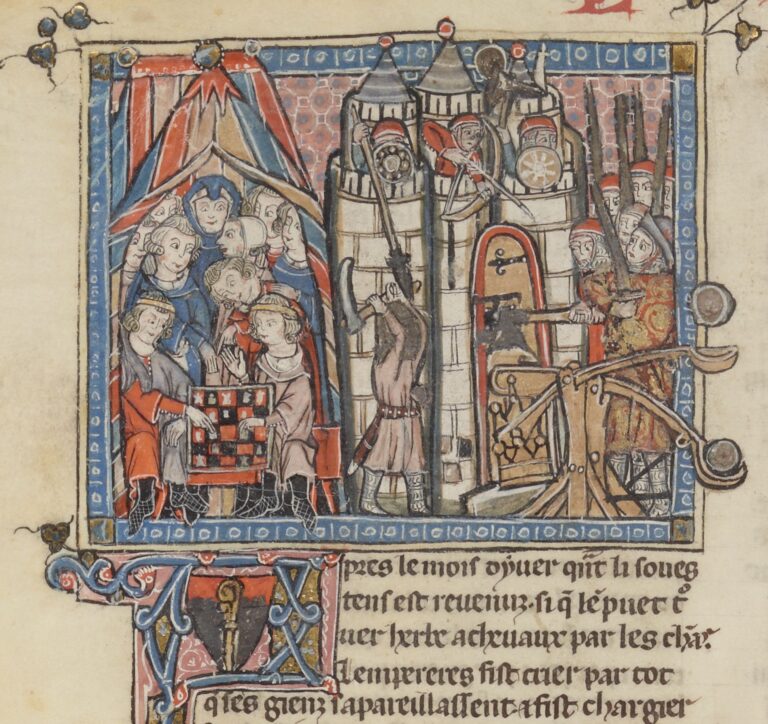 Apres le mois dyuer qñt li soues
tens est reuenuz. si q̃ lẽ puet tͦ
uer herbe a cheuaux par les chãs.
Lempereres fist crier par tot
q̃ ses genz sapareillassent. ⁊ fist chargier